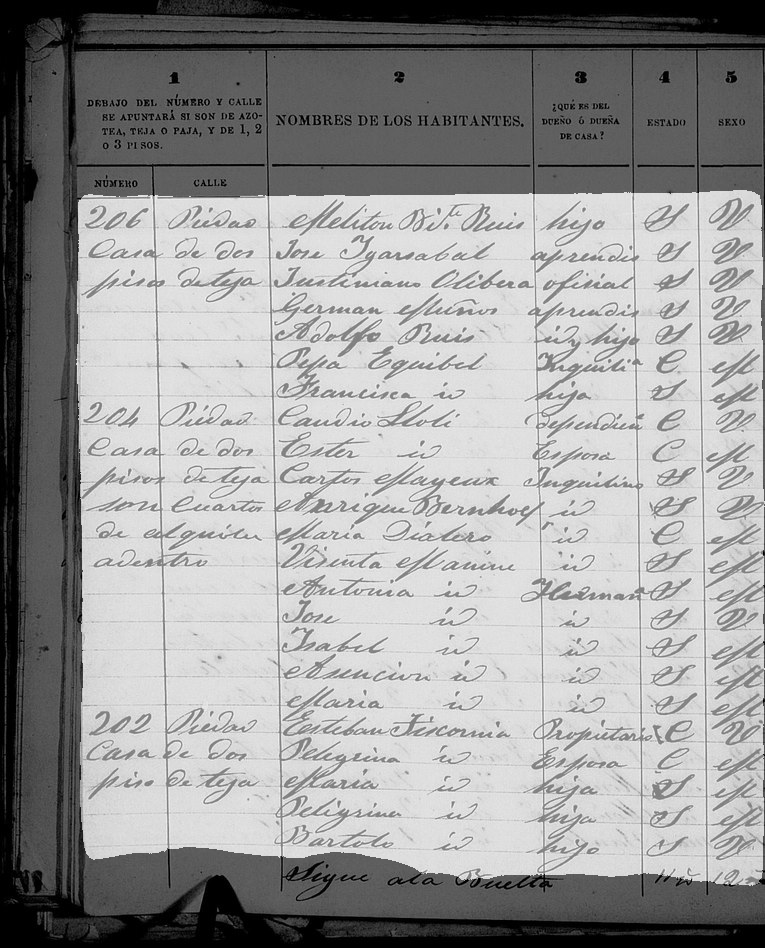 1 2 3 4 5
DEBAJO DEL NÚMERO Y CALLE SE APUNTARÁ SI SON DE AZOTEA, TEJA O PAJA, Y DE 1, 2 O 3 PISOS.
NOMBRES DE LOS HABITANTES.
¿QUÉ ES DEL DUEÑO Ó DUEÑA DE CASA?
ESTADO
SEXO
NÚMERO CALLE
206 Piedad Meliton Bi.te Ruis hijo S V
Casa de dos Jose Ygarsabal aprendis S V
pisos de teja Justiniano Olibera ofisial S V
German Muños aprendis S V
Adolfo Ruis id hijo S V
Pepa Equibel Ynquilia C M
Francisca id hija S M
204 Piedad Caudio Stoli dependien C V
Casa de dos Ester id Esposa C M
pisos de teja Carlos Mayeux Ynquilino S V
son Cuartos Anrique Bernhoef id S V
de alquiler Maria Dialero id C M
adentro Visenta Manine id S M
Antonia id Hermañ S M
Jose id id S V
Isabel id id S M
Asencion id id S M
Maria id id S M
202 Piedad Esteban Fiscornia Propietario C V
Casa de dos Pelegrina id Esposa C M
piso de teja Maria id hija S M
Peligrina id hija S M
Bartolo id hijo S V
Sigue ala Buelta 12